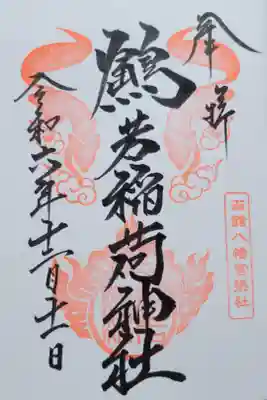 奉拝
函館八幡宮
鶴若稲荷神社
令和六年十二月十一日